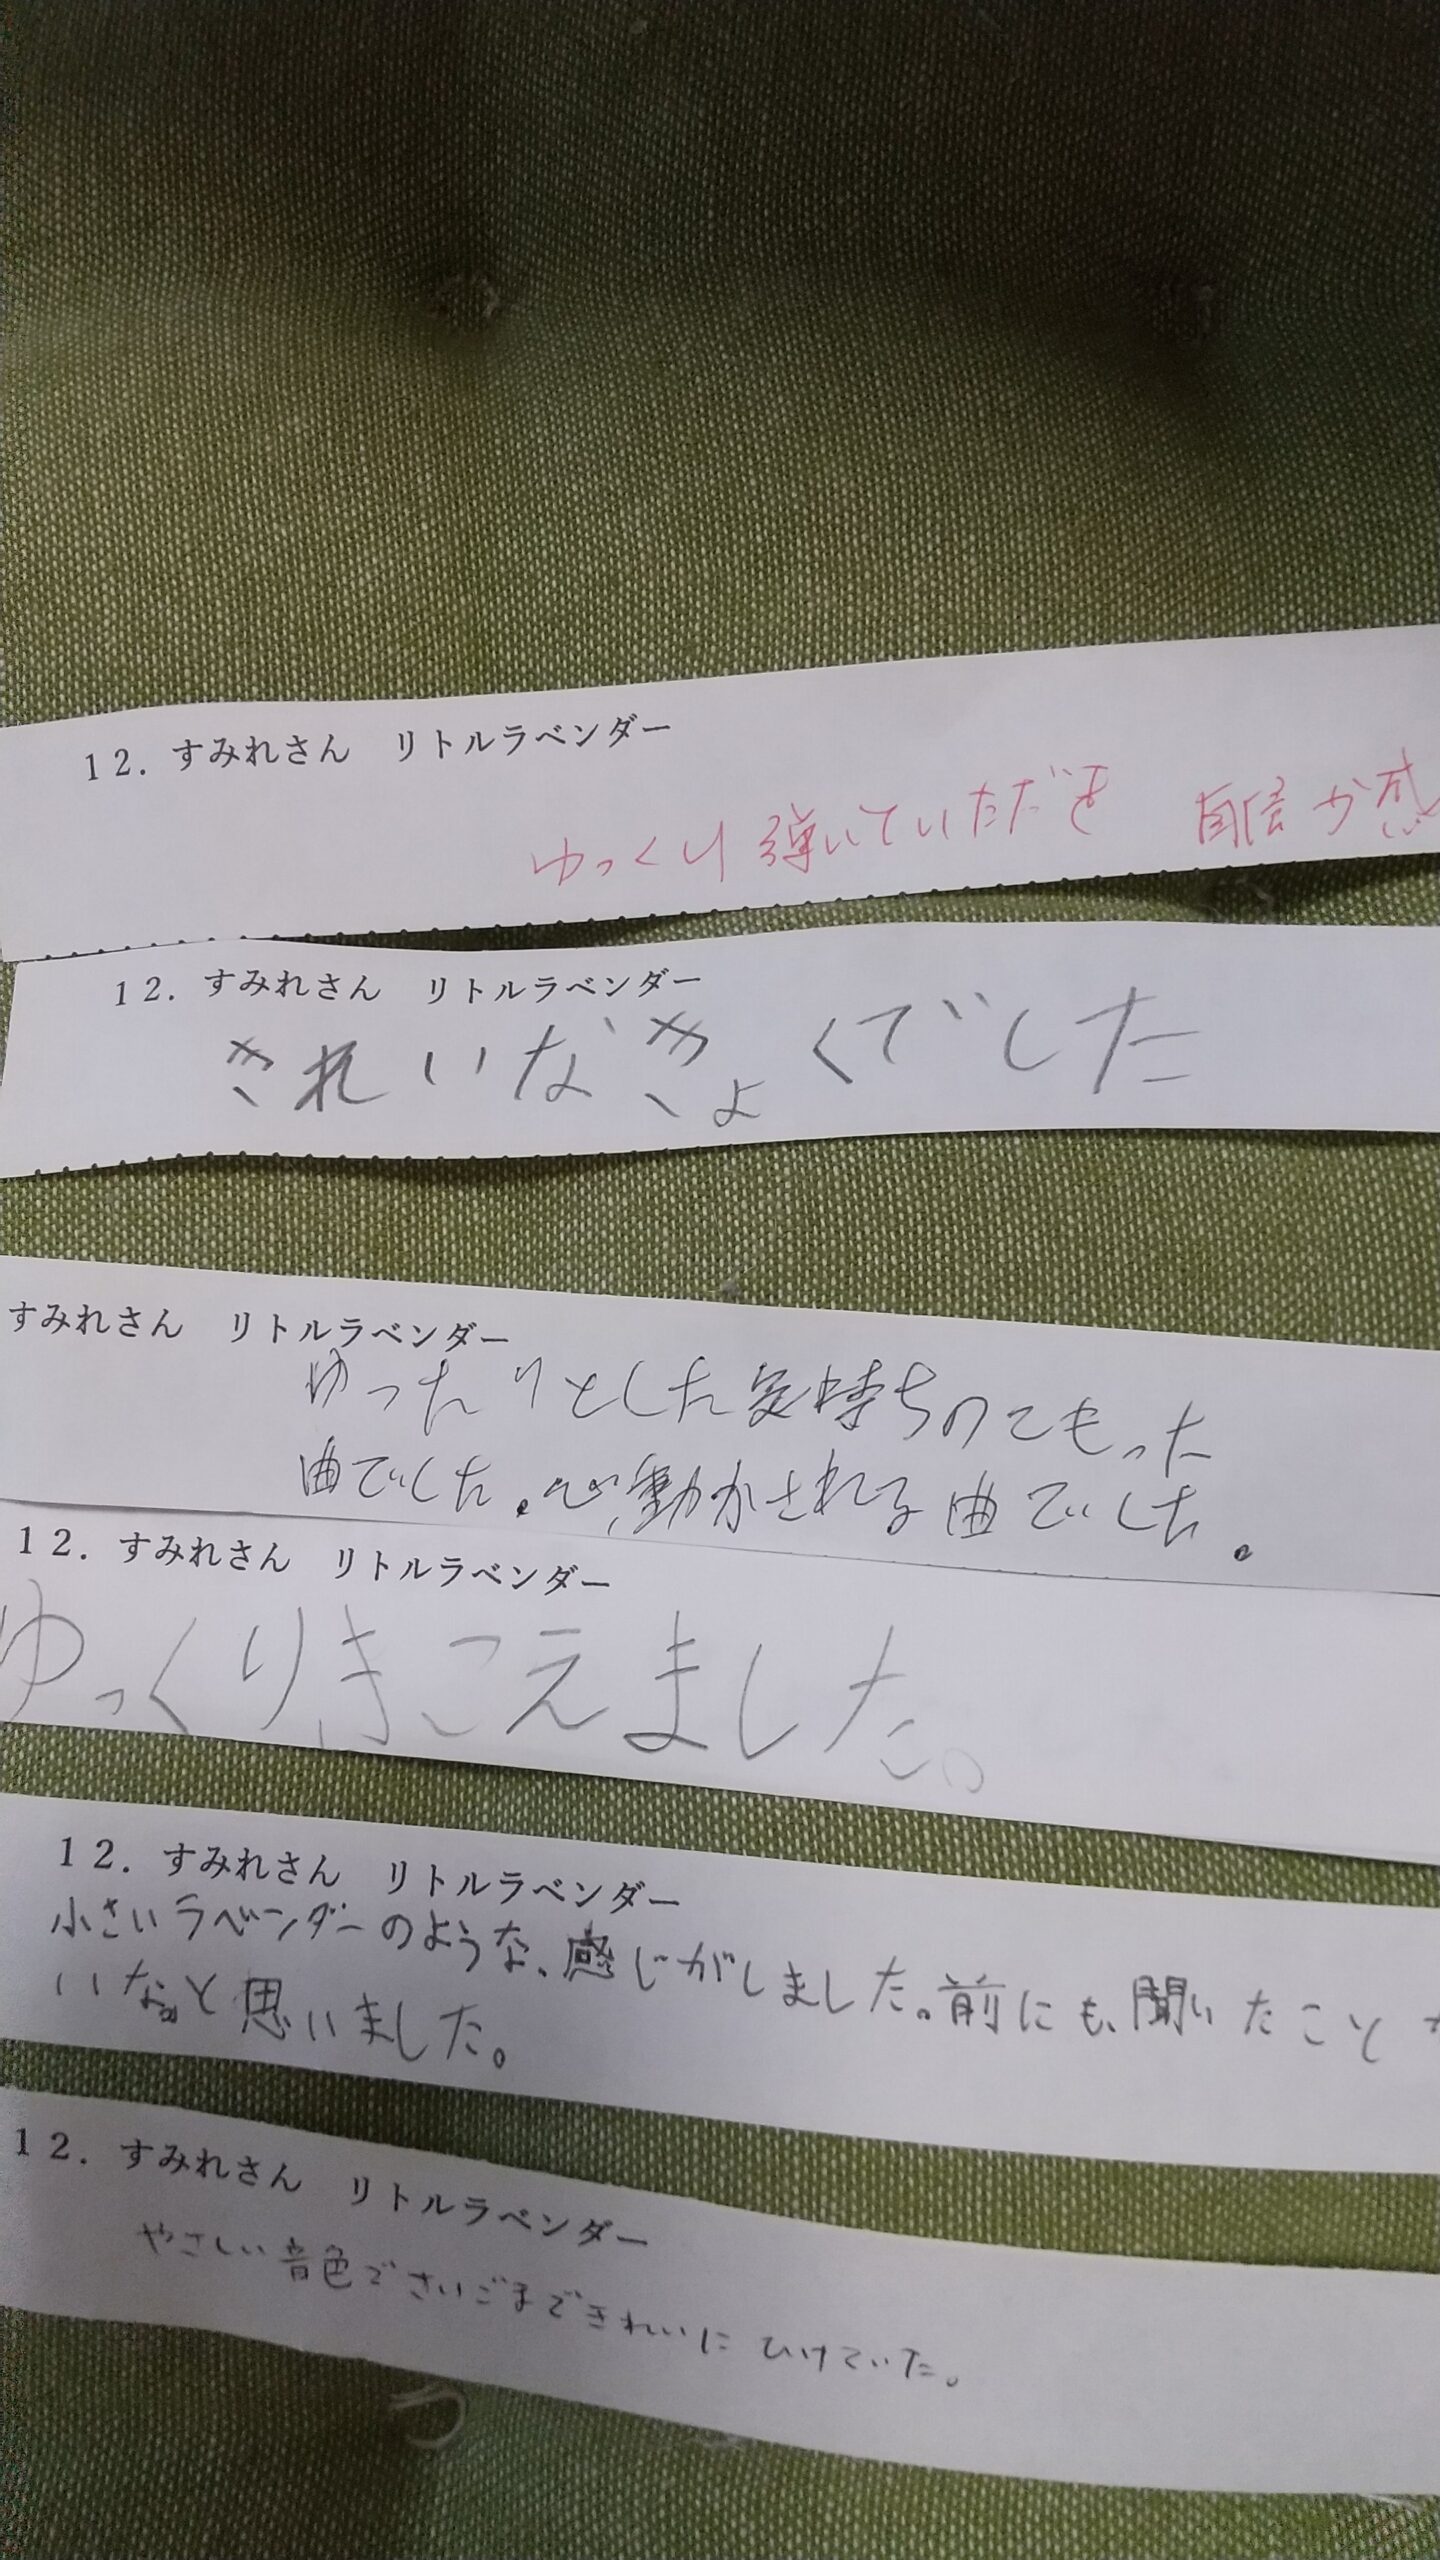 12. すみれさん リトルラベンダー
ゆっくり弾いていただき 自信が感
12. すみれさん リトルラベンダー
きれいなきょくでした
すみれさん リトルラベンダー
ゆったりとした気持ちのこもった
曲でした。心動かされる曲でした。
12. すみれさん リトルラベンダー
ゆっくりきこえました。
12. すみれさん リトルラベンダー
小さいラベンダーのような、感じがしました。前にも、聞いたこと
いな。と思いました。
12. すみれさん リトルラベンダー
やさしい音色でさいごまできれいにひけていた。